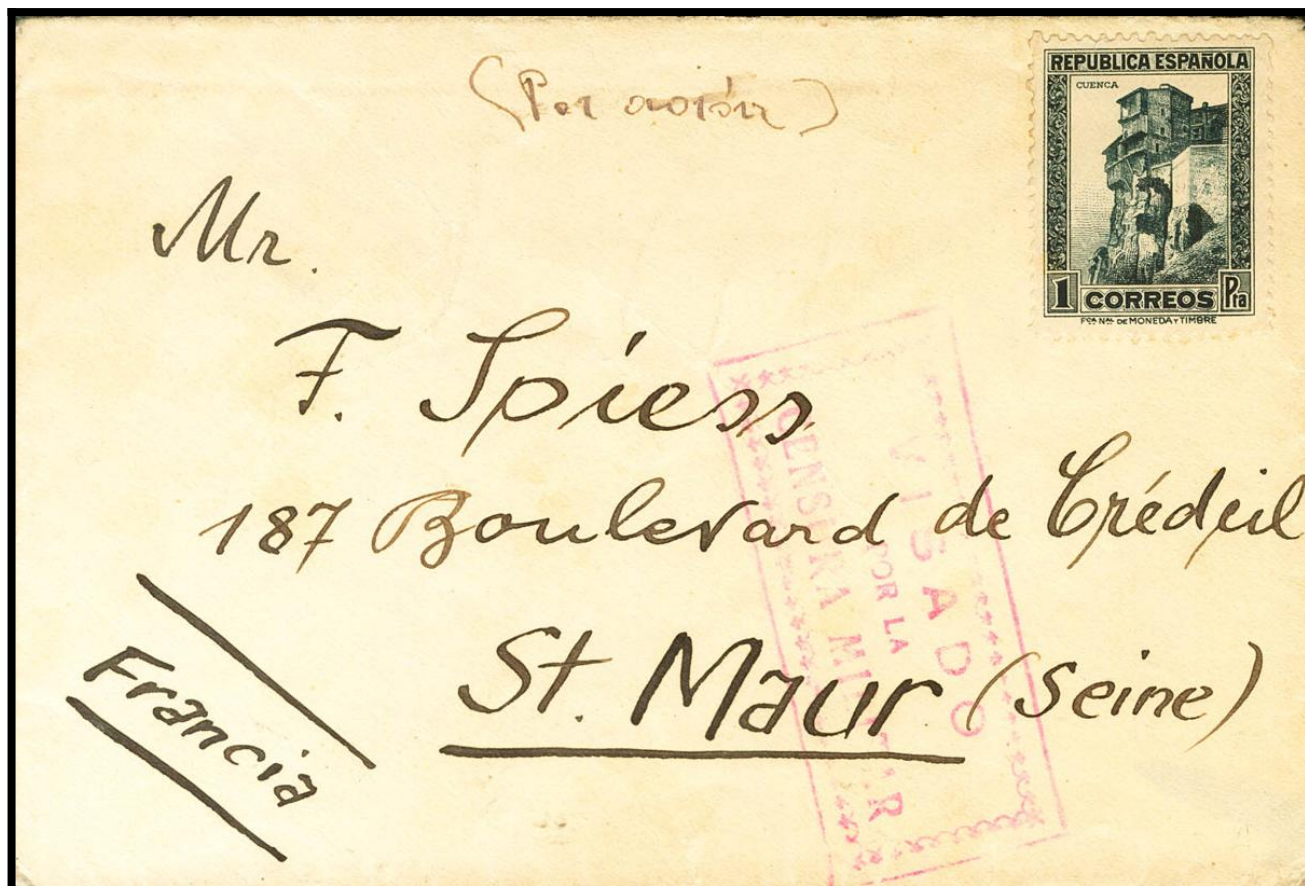 (Por avión)
REPUBLICA ESPAÑOLA
CUENCA
1 CORREOS Pta
Fca Nal DE MONEDA Y TIMBRE
Mr.
F. Spiess
187 Boulevard de Crédeil
St. Maur (Seine)
Francia
VISADO
POR LA
CENSURA MILITAR